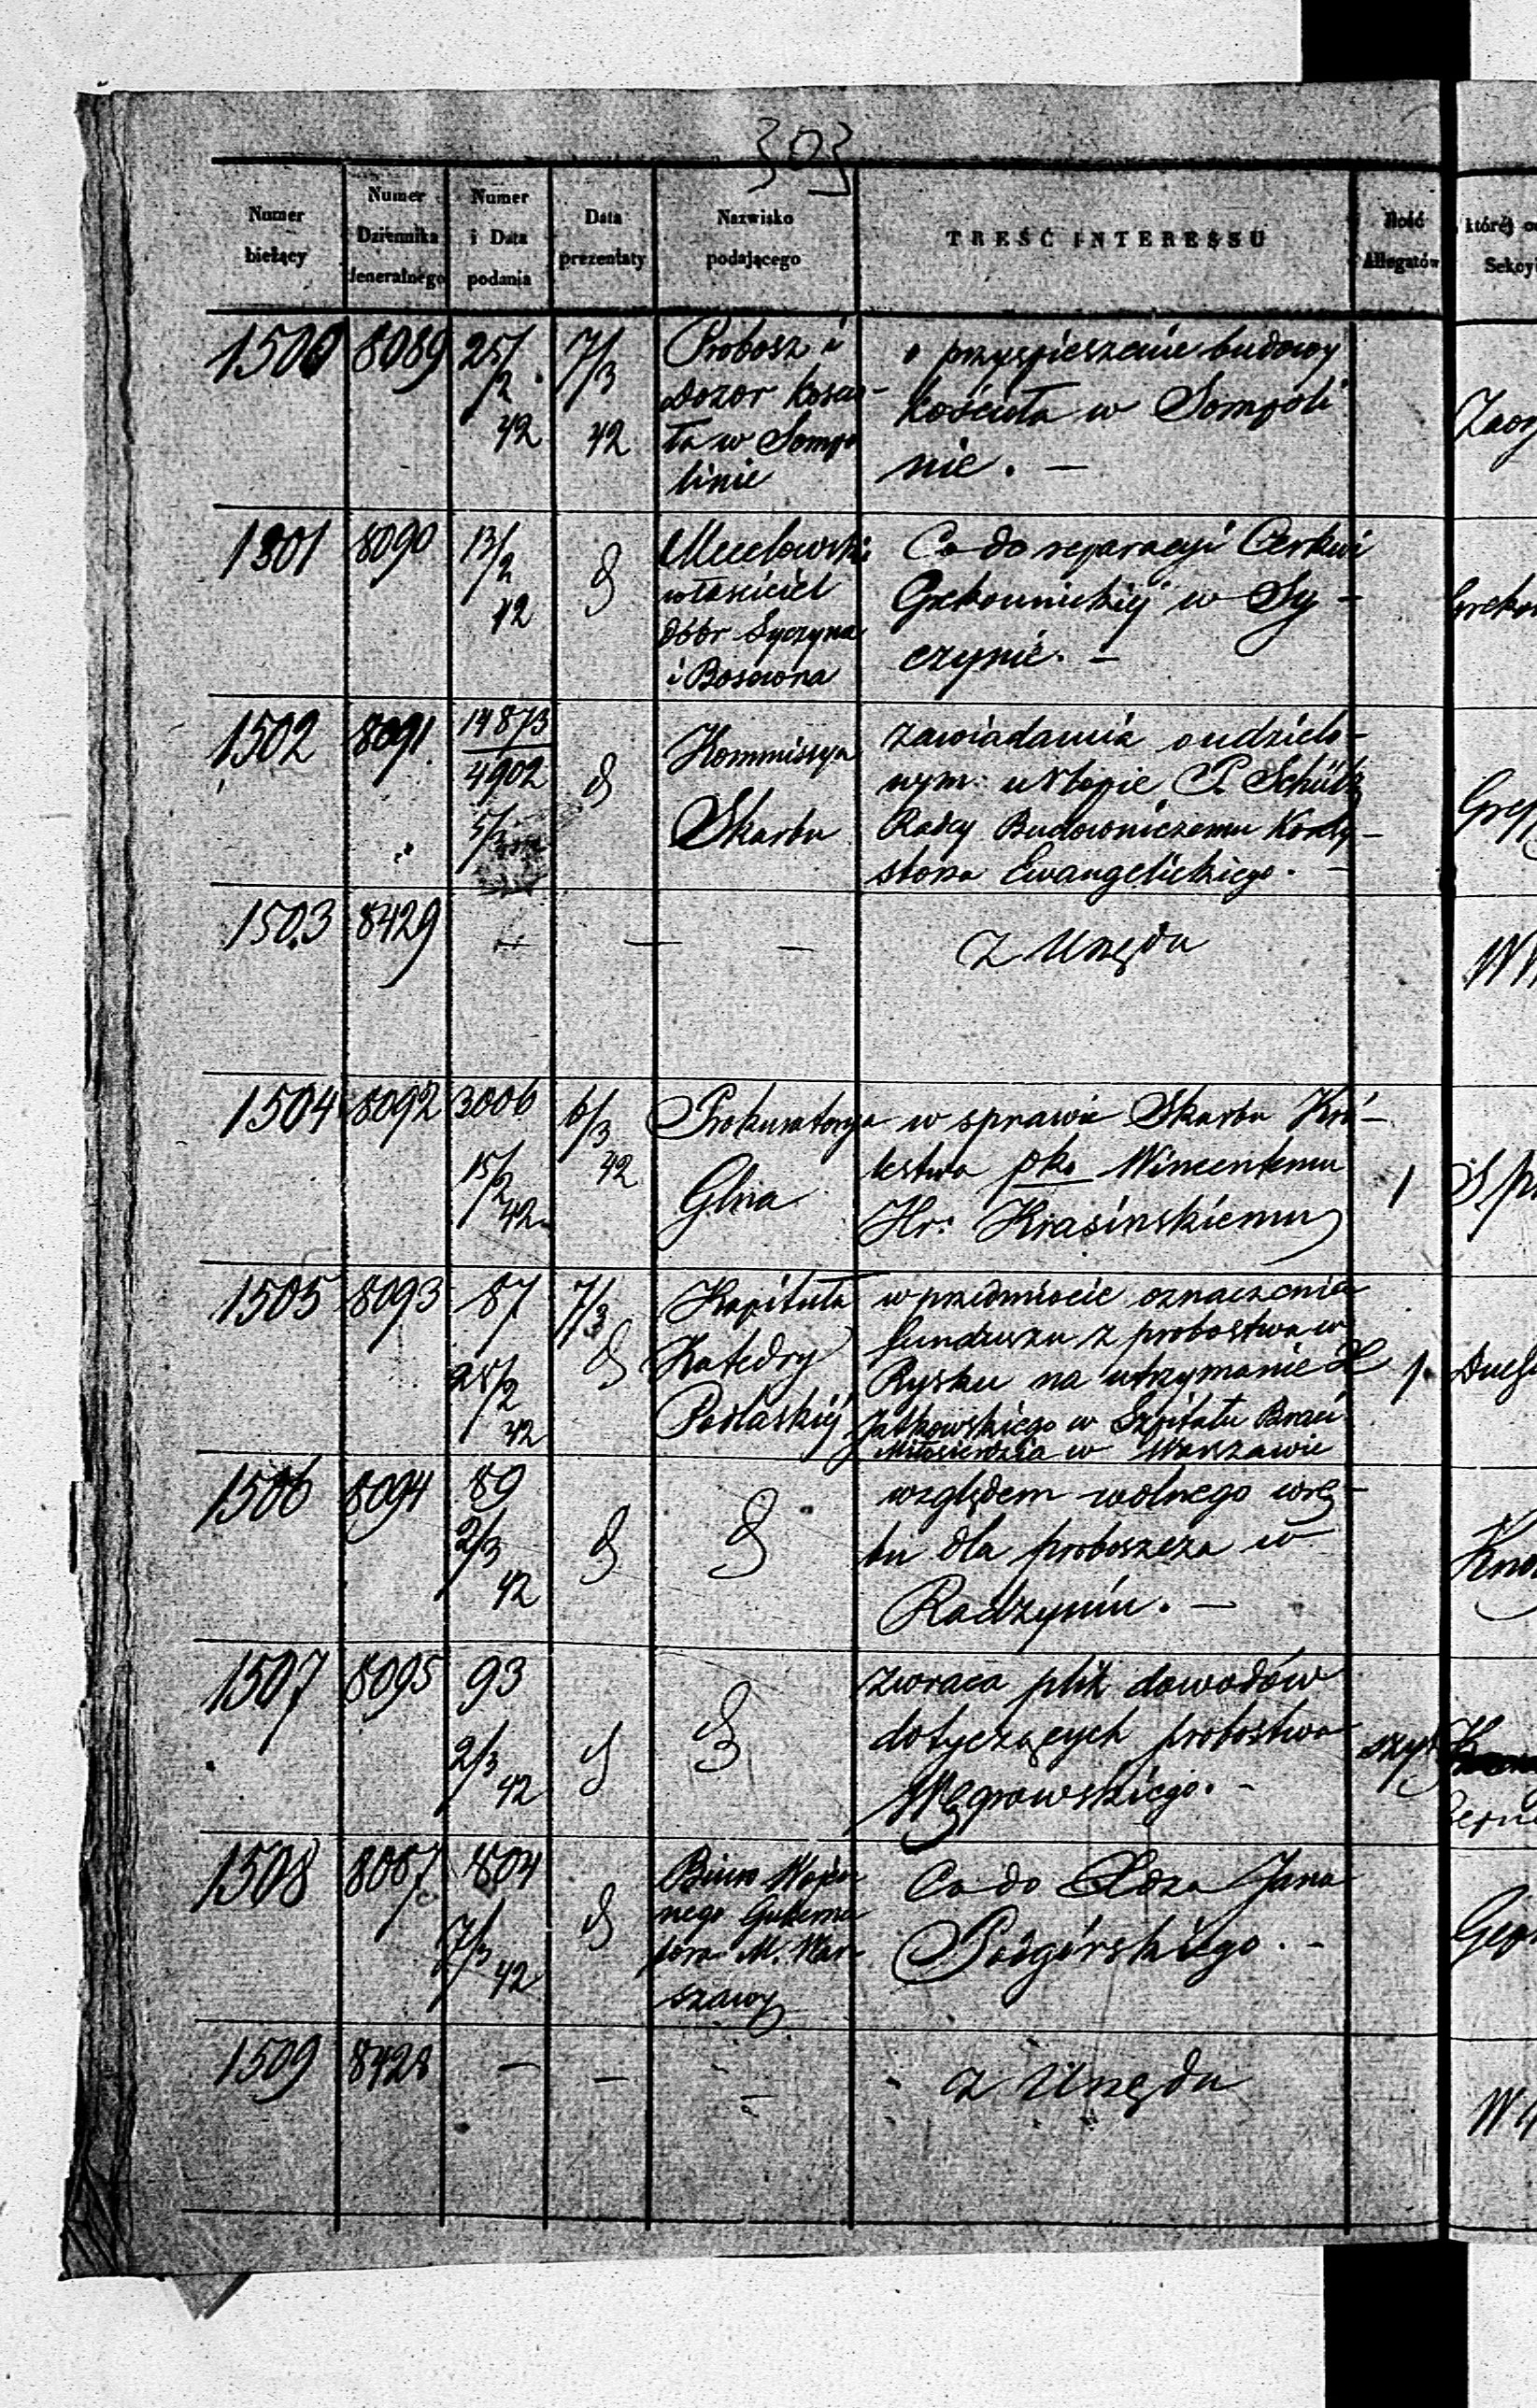 303
Numer bieżący
Numer Dziennika Jeneralnego
Numer i Data podania
Data prezentaty
Nazwisko podającego
TREŚĆ INTERESSU
Ilość Allegatów
której
1500 8089 25/2 42 7/3 42
Probosz i
Dozor kościo-
ła w Sompo
linie
o przyspieszenie budowy
kościoła w Sompoli
nie. —
1501 8090 13/2 42
właściciel
dóbr Syczyna
i
Co do reparacyi Cerkwi
Grekounickiej w Sy-
czynie. —
1502 8091 14873/4902
Kommissya
Skarbu
zawiadamia o udzielo-
nym urlopie P. Schütz
Radcy Budowniczemu Konsy-
storza Ewangelickiego. —
1503 8429 — — —
z Urzędu
1504 8092 3006 15/2 42 6/3 42
Prokuratorya
Glna
w sprawie Skarbu Kró-
lestwa pko Wincentemu
Hr: Krasińskiemu
1
1505 8093 87 25/2 42 7/3
Kapituła
Katedry
Podlaskiej
w przedmiocie oznaczenia
funduszu z probostwa w
Rysku na utrzymanie X
w Szpitalu Braci
Miłosierdzia w Warszawie
1
1506 8094 89 2/3 42
względem wolnego wrę-
bu dla proboszcza w
Radzyniu. —
1507 8095 93 2/3 42
zwraca plik dowodów
dotyczących probostwa
Węgrowskiego. -
szyt
1508 8087 804 7/3 42
Biuro Wojen
nego Guberna
tora M. War
szawy
Co do Xdza Jana
Podgórskiego. -
1509 8428 — — —
z Urzędu